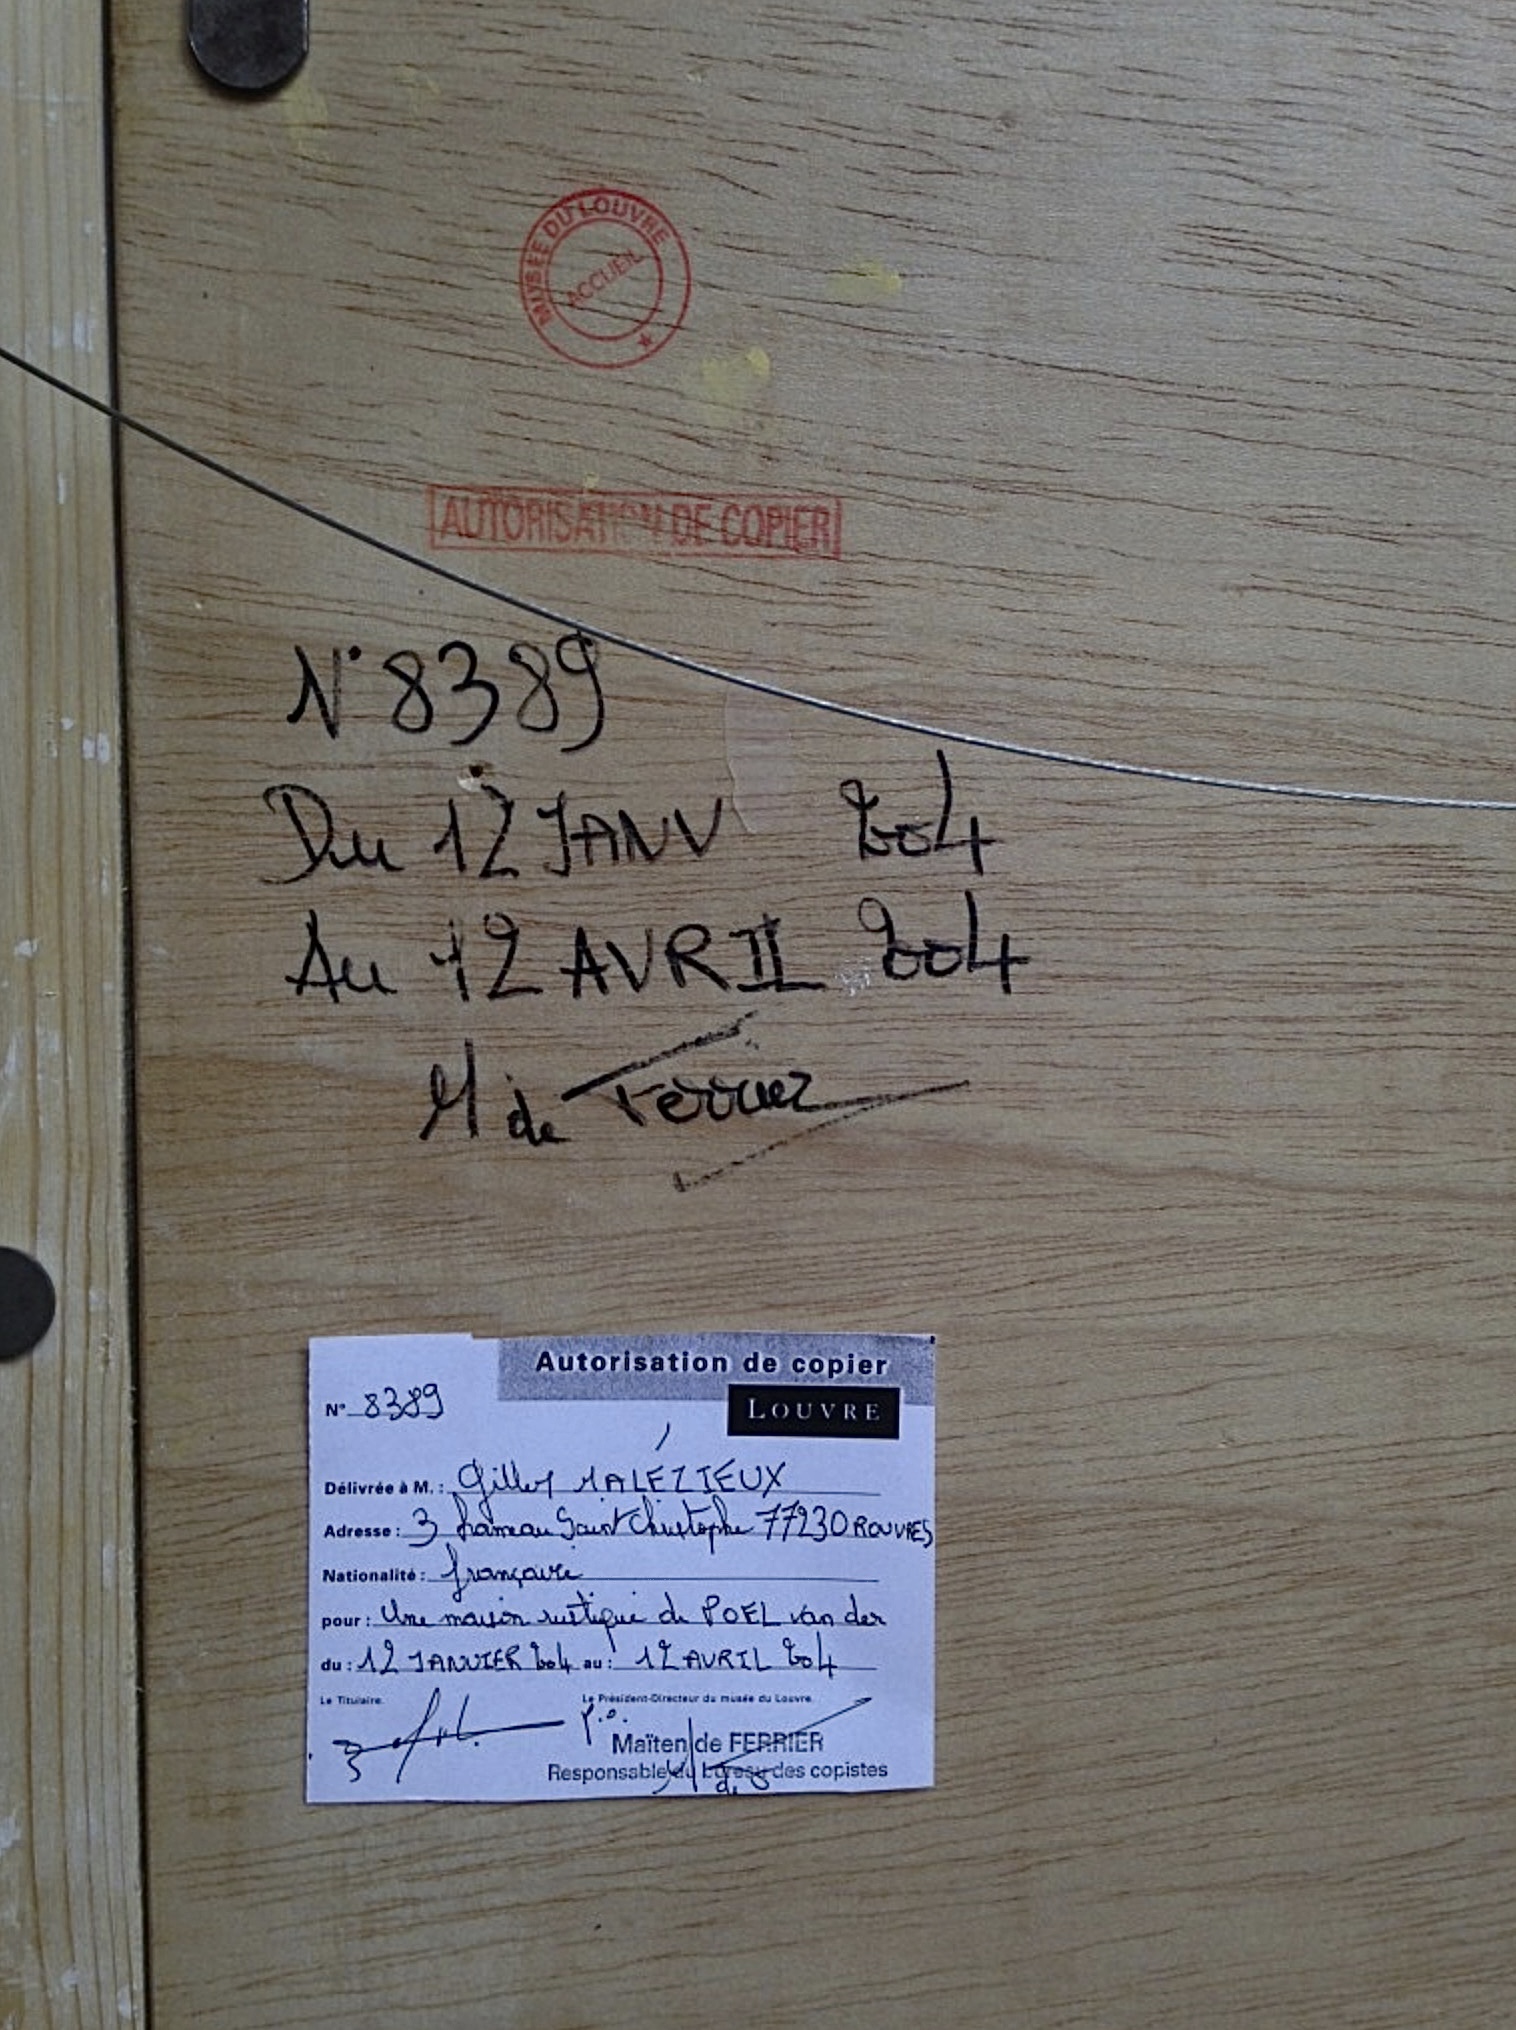 MUSEE DU LOUVRE
ACCUEIL
AUTORISATION DE COPIER
N° 8389
Du 12 JANV 2004
Au 12 AVRIL 2004
M de Ferrier
Autorisation de copier
LOUVRE
N° 8389
Délivrée à M. : Gilles MALÉZIEUX
Adresse : 3 hameau Saint Christophe 77230 ROUVRES
Nationalité : française
pour : Une maison rustique de POEL van der
du : 12 JANVIER 2004 au : 12 AVRIL 2004
Le Titulaire. Le Président-Directeur du musée du Louvre.
P.o.
Maïten de FERRIER
Responsable du bureau des copistes